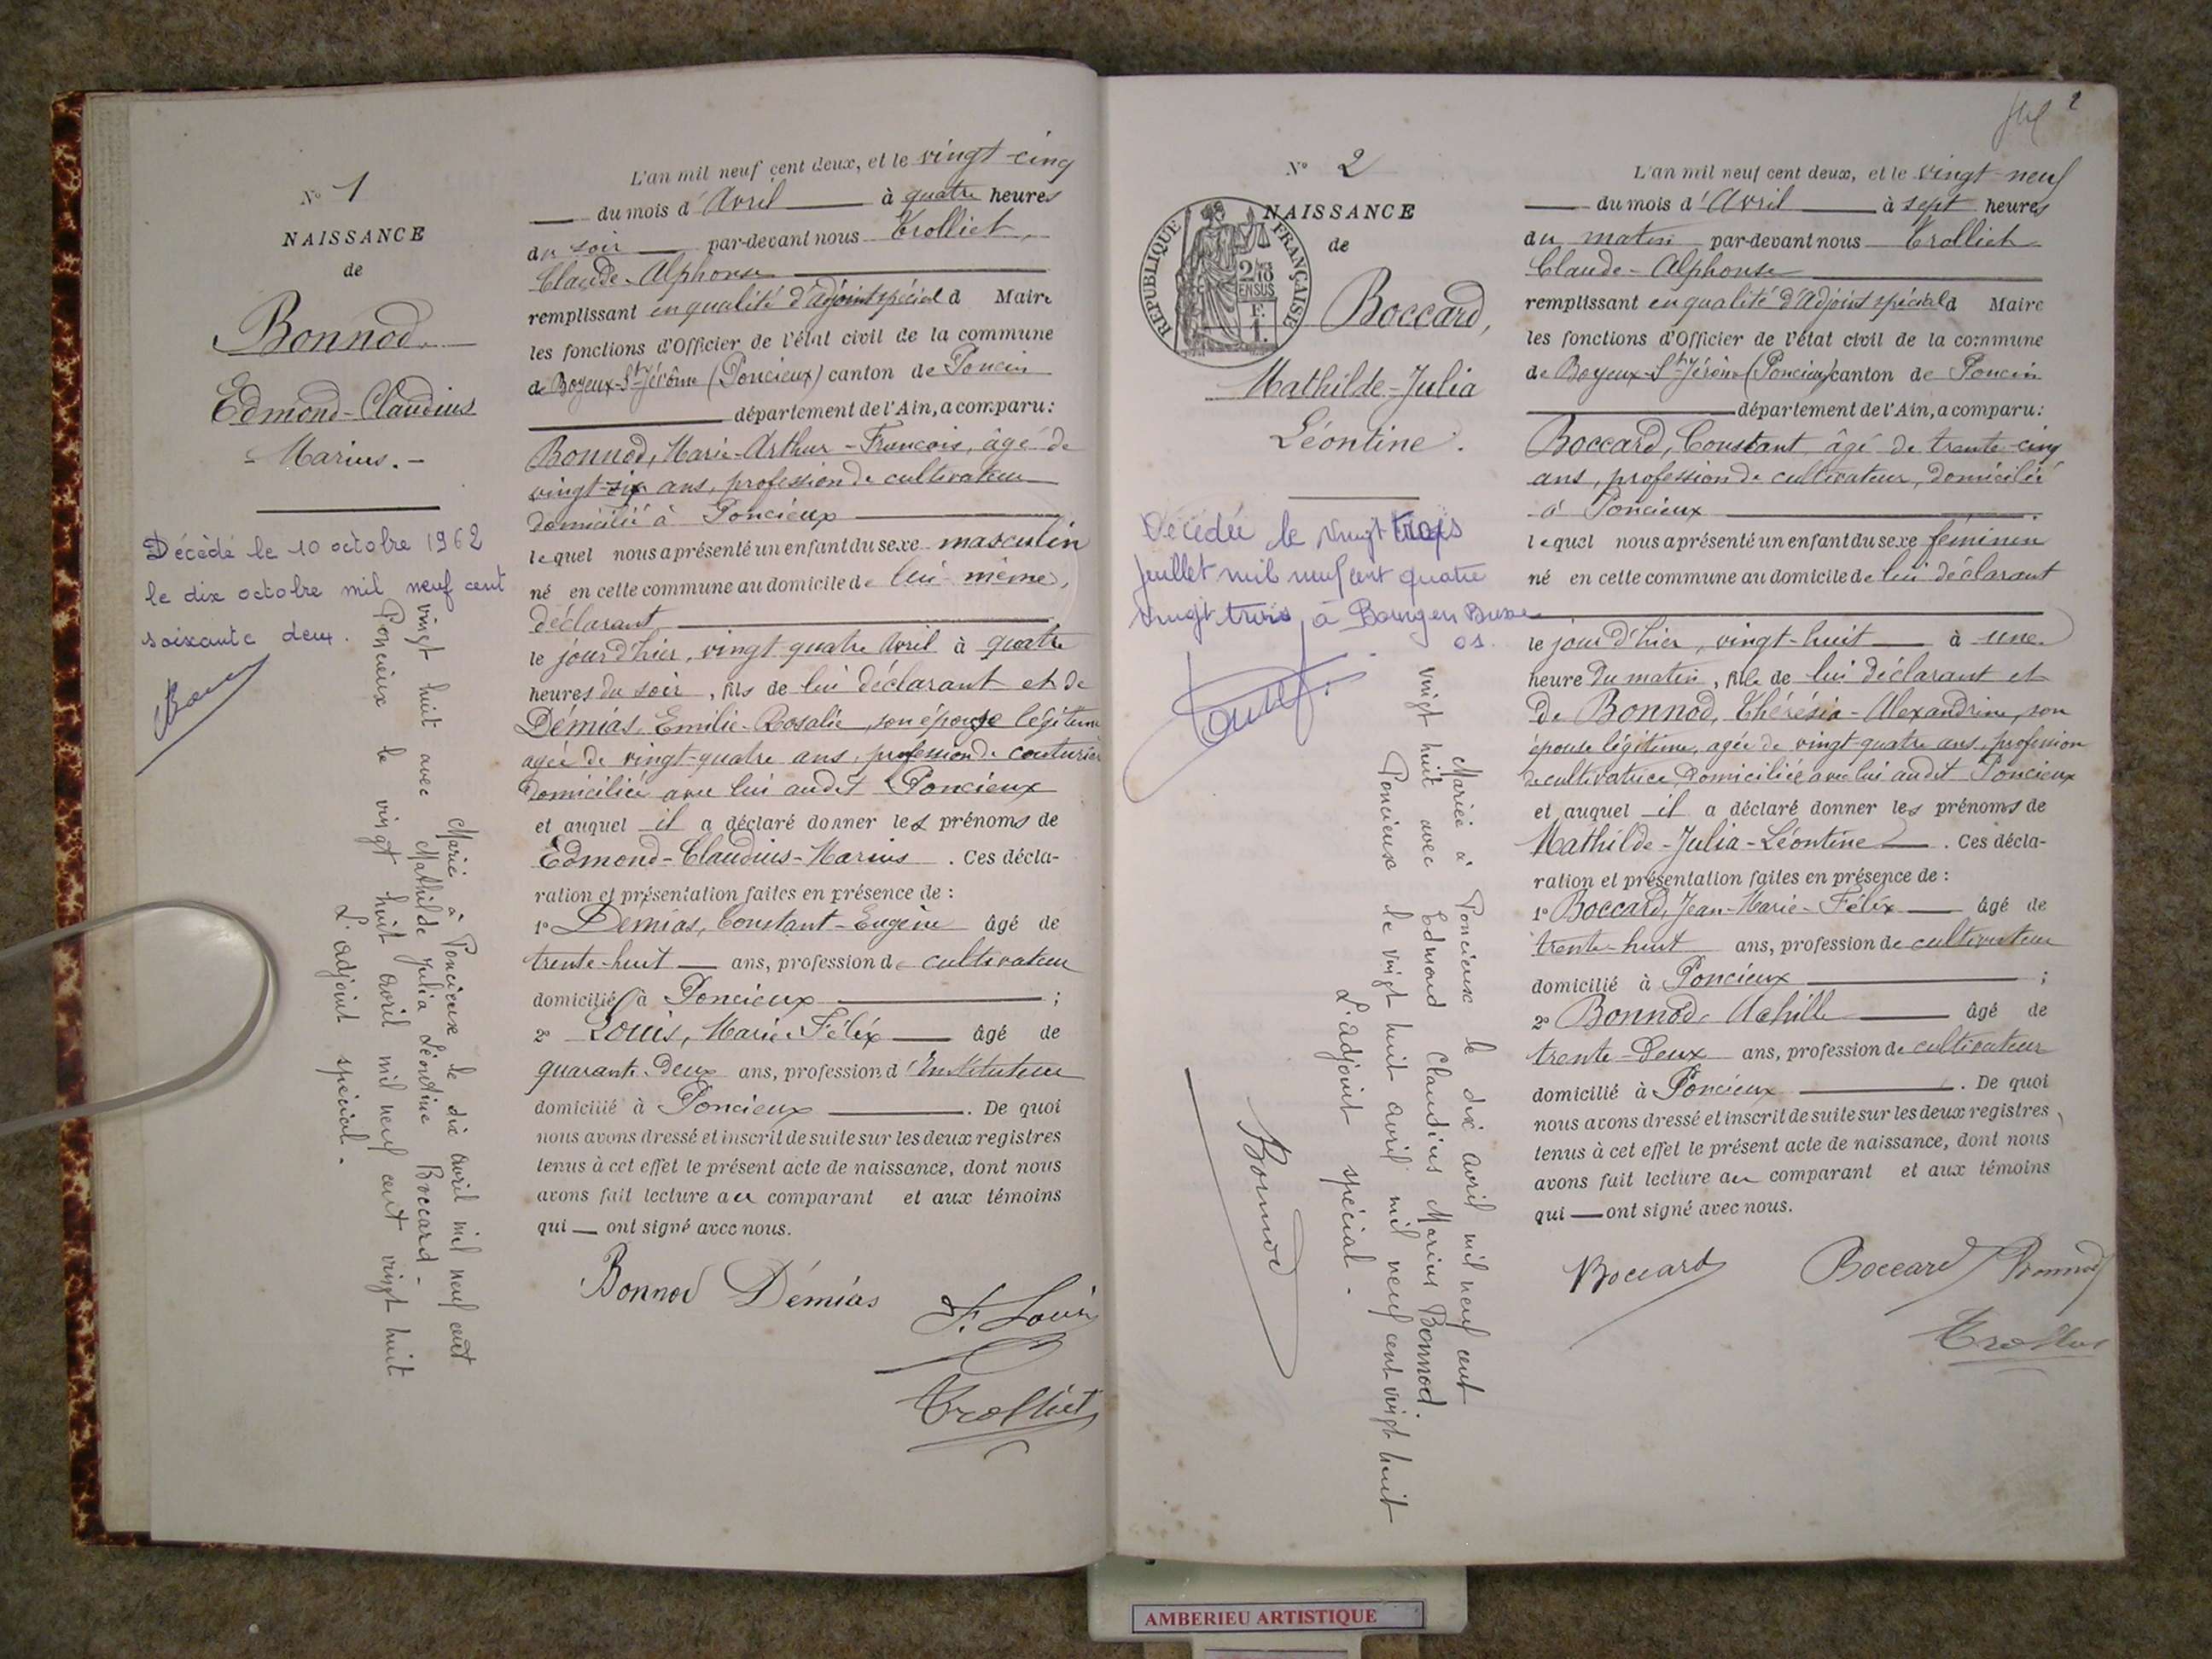 N° 1
NAISSANCE
de
Bonnod
Edmond-Claudius
- Marius. -
Décédé le 10 octobre 1962
le dix octobre mil neuf cent
soixante deux.
Marié à Poncieux le dix avril mil neuf cent
vingt huit avec Mathilde Julia Léontine Boccard -
Poncieux le vingt huit avril mil neuf cent vingt huit
L'adjoint spécial -
L'an mil neuf cent deux, et le vingt-cinq
du mois d'Avril à quatre heures
du soir par-devant nous Trolliet,
Claude-Alphonse
remplissant en qualité d'adjoint spécial d Maire
les fonctions d'Officier de l'état civil de la commune
de Boyeux-St-Jérôme (Poncieux) canton de Poncin
département de l'Ain, a comparu:
Bonnod, Marie-Arthur-François, âgé de
vingt-six ans, profession de cultivateur
domicilié à Poncieux
lequel nous a présenté un enfant du sexe masculin
né en cette commune au domicile de lui-même,
déclarant
le jour d'hier, vingt quatre Avril à quatre
heures du soir, fils de lui déclarant et de
Démias, Emilie-Rosalie, son épouse légitime
agée de vingt-quatre ans, profession de couturière
domiciliée avec lui audit Poncieux
et auquel il a déclaré donner les prénoms de
Edmond-Claudius-Marius. Ces décla-
ration et présentation faites en présence de :
1° Démias, Constant-Eugène âgé de
trente-huit ans, profession de cultivateur
domicilié à Poncieux ;
2° Louis, Marie-Félix âgé de
quarante-deux ans, profession d'Instituteur
domicilié à Poncieux. De quoi
nous avons dressé et inscrit de suite sur les deux registres
tenus à cet effet le présent acte de naissance, dont nous
avons fait lecture au comparant et aux témoins
qui ont signé avec nous.
Bonnod Démias F. Louis
Trolliet
2
N° 2
NAISSANCE
de
RÉPUBLIQUE FRANÇAISE
2/10
EN SUS
F.
1.
Boccard,
Mathilde-Julia
Léontine.
Décédée le vingt trois
juillet mil neuf cent quatre
vingt trois, à Bourg en Bresse
01.
Mariée à Poncieux le dix avril mil neuf cent
vingt huit avec Edmond Claudius Marius Bonnod.
Poncieux le vingt huit avril mil neuf cent vingt huit
L'adjoint spécial -
Bonnod
L'an mil neuf cent deux, et le vingt-neuf
du mois d'Avril à sept heures
du matin par-devant nous Trolliet
Claude-Alphonse
remplissant en qualité d'Adjoint spécial d Maire
les fonctions d'Officier de l'état civil de la commune
de Boyeux-St-Jérôme (Poncieux) canton de Poncin
département de l'Ain, a comparu:
Boccard, Constant, âgé de trente-cinq
ans, profession de cultivateur, domicilié
à Poncieux
lequel nous a présenté un enfant du sexe féminin
né en cette commune au domicile de lui déclarant
le jour d'hier, vingt-huit à une
heure du matin, fille de lui déclarant et
de Bonnod, Thérésia-Alexandrine, son
épouse légitime, agée de vingt-quatre ans, profession
de cultivatrice, domiciliée avec lui audit Poncieux
et auquel il a déclaré donner les prénoms de
Mathilde-Julia-Léontine. Ces décla-
ration et présentation faites en présence de :
1° Boccard, Jean-Marie-Félix âgé de
trente-huit ans, profession de cultivateur
domicilié à Poncieux ;
2° Bonnod, Achille âgé de
trente-deux ans, profession de cultivateur
domicilié à Poncieux. De quoi
nous avons dressé et inscrit de suite sur les deux registres
tenus à cet effet le présent acte de naissance, dont nous
avons fait lecture au comparant et aux témoins
qui ont signé avec nous.
Boccard Boccard Bonnod
Trolliet
AMBERIEU ARTISTIQUE